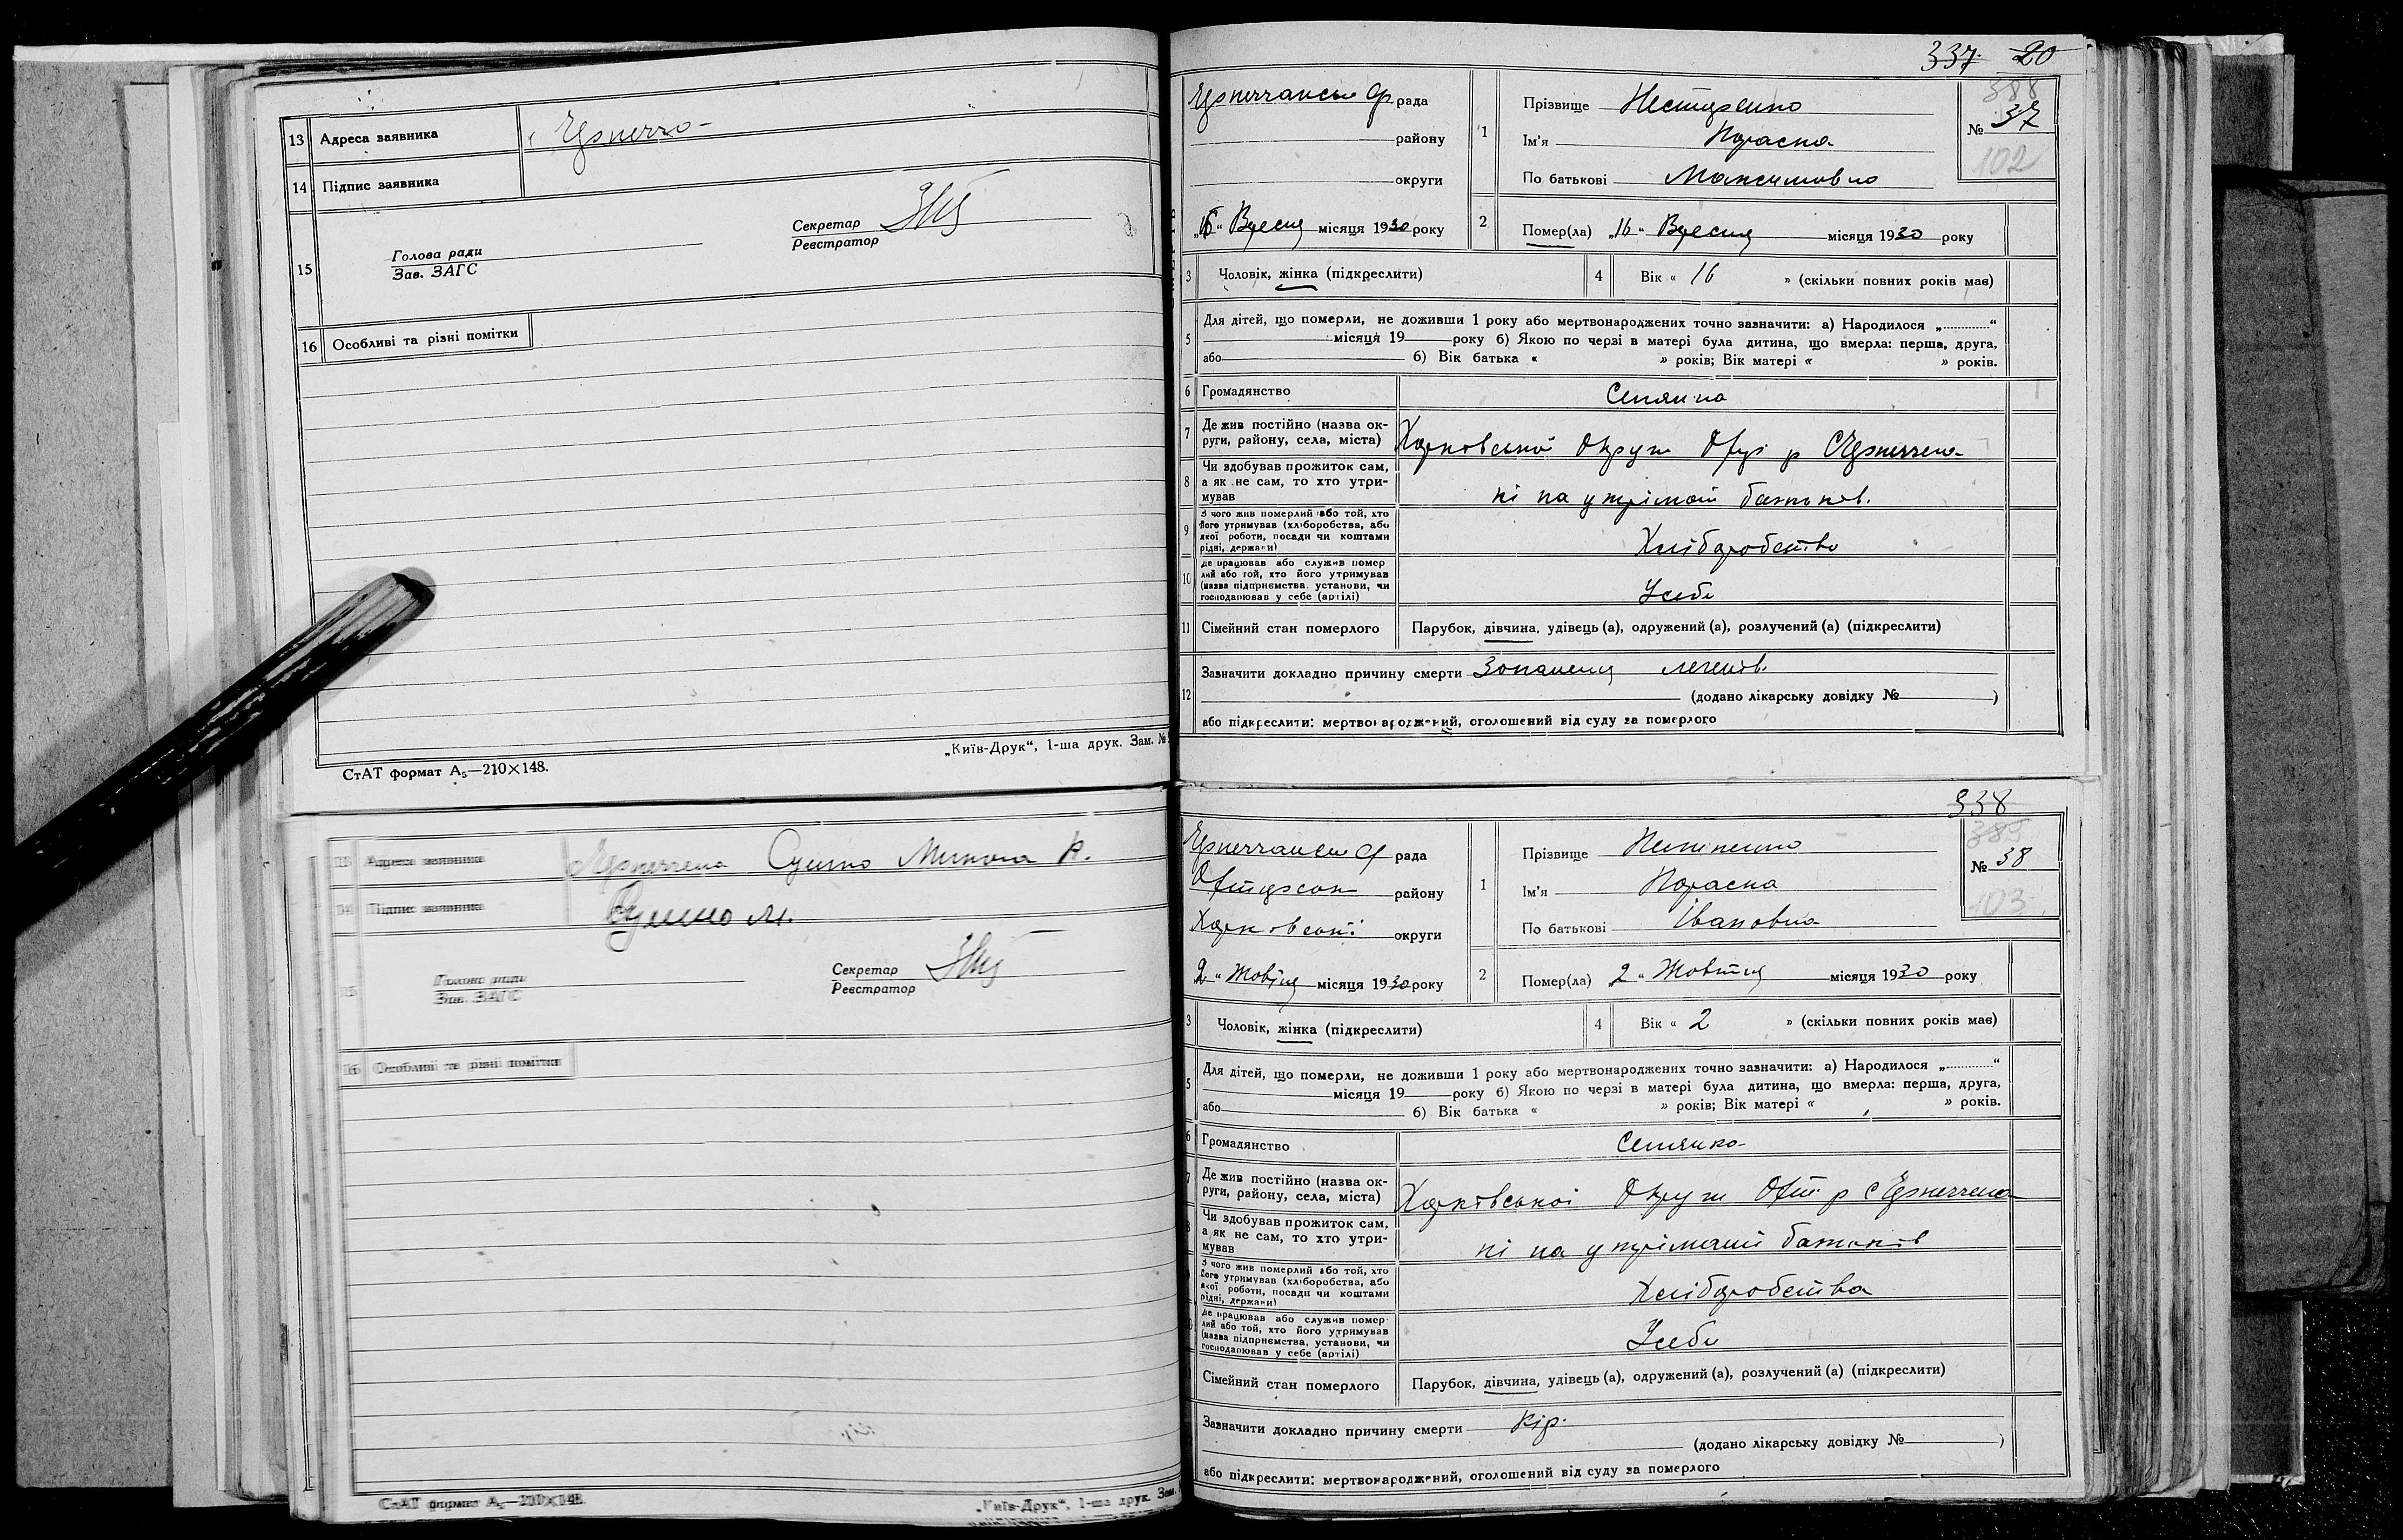 13 Адреса заявника
14 Підпис заявника
15 Голова ради
Зав. ЗАГС
Секретар
Реєстратор
16 Особливі та різні помітки
„Київ-Друк“, 1-ша друк. Зам. №
СтАТ формат А₅—210×148.
13 Адреса заявника Сушко Микола К.
14 Підпис заявника Сушко М.
15 Голова ради
Зав. ЗАГС
Секретар
Реєстратор
16 Особливі та різні помітки
СтАТ формат А₅—210×148.
„Київ-Друк“, 1-ша друк. Зам.
337 20
388
рада
району
округи
„16“ Вересня місяця 1930 року
1 Прізвище Нестеренко
Ім'я Параска
По батькові Максимовна
№ 37
102
2 Помер(ла) „16“ Вересня місяця 1930 року
3 Чоловік, жінка (підкреслити)
4 Вік « 16 » (скільки повних років мав)
5 Для дітей, що померли, не доживши 1 року або мертвонароджених точно зазначити: а) Народилося „ “
місяця 19 року б) Якою по черзі в матері була дитина, що вмерла: перша, друга,
або б) Вік батька « » років; Вік матері « » років.
6 Громадянство Селянка
7 Де жив постійно (назва ок-
руги, району, села, міста) Харковської Округи
8 Чи здобував прожиток сам,
а як не сам, то хто утри-
мував ні на утрімані батьков.
9 З чого жив померлий або той, хто
його утримував (хліборобства, або
якої роботи, посади чи коштами
рідні, держави) Хліборобство
10 Де працював або служив помер
лий або той, хто його утримував
(назва підприємства, установи, чи
господарював у себе (артілі) Усебе
11 Сімейний стан померлого Парубок, дівчина, удівець (а), одружений (а), розлучений (а) (підкреслити)
12 Зазначити докладно причину смерти Зопаления легенів
(додано лікарську довідку № )
або підкреслити: мертвонароджений, оголошений від суду за померлого
338
389
рада
району
Харківської округи
„2“ Жовтня місяця 1930 року
1 Прізвище
Ім'я Параска
По батькові Івановна
№ 38
103
2 Помер(ла) „2“ Жовтня місяця 1930 року
3 Чоловік, жінка (підкреслити)
4 Вік « 2 » (скільки повних років мав)
5 Для дітей, що померли, не доживши 1 року або мертвонароджених точно зазначити: а) Народилося „ “
місяця 19 року б) Якою по черзі в матері була дитина, що вмерла: перша, друга,
або б) Вік батька « » років; Вік матері « » років.
6 Громадянство Селянка
7 Де жив постійно (назва ок-
руги, району, села, міста) Харківської Округи
8 Чи здобував прожиток сам,
а як не сам, то хто утри-
мував ні на утрімані батьків
З чого жив померлий або той, хто
його утримував (хліборобства, або
якої роботи, посади чи коштами
рідні, держави) Хліборобства
Де працював або служив помер
лий або той, хто його утримував
(назва підприємства, установи, чи
господарював у себе (артілі) Усебе
Сімейний стан померлого Парубок, дівчина, удівець (а), одружений (а), розлучений (а) (підкреслити)
Зазначити докладно причину смерти Кір.
(додано лікарську довідку № )
або підкреслити: мертвонароджений, оголошений від суду за померлого